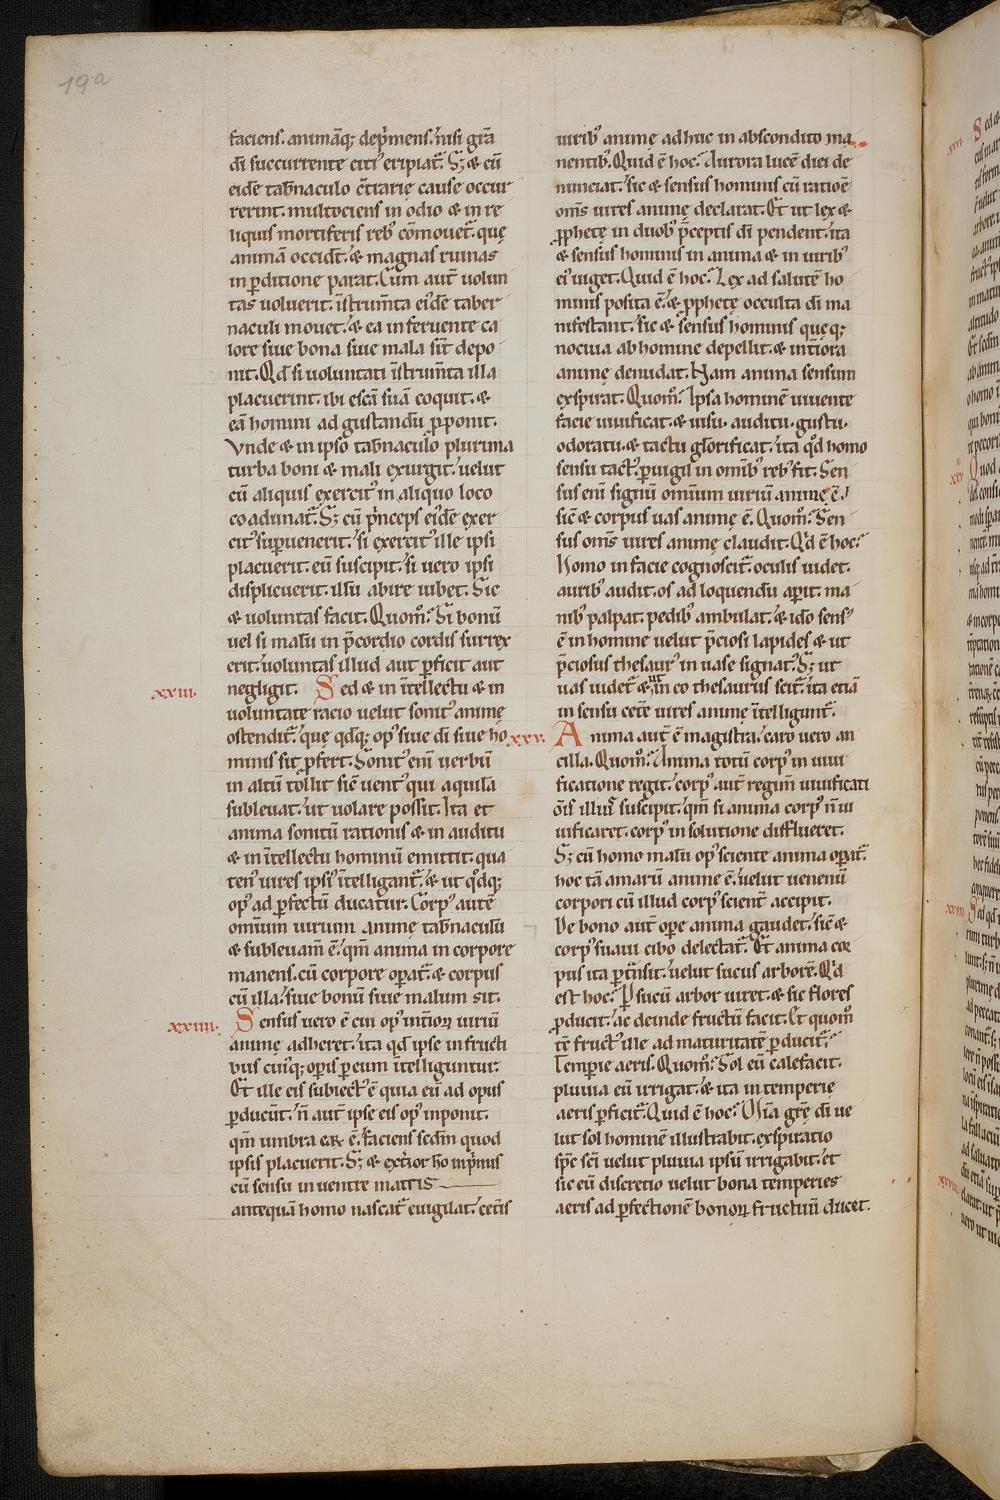 19a
faciens. animāq; dep̄mens. nisi gr̄a
dī succurrente citi᾽ eripiat᷑. S; & cū
eidē tab̄naculo c̄trarię cause occur
rerint. multociens in odio & in re
liquis mortiferis reb᾽ cōmouet᷑. que
animā occid̄t. & magnas ruinas
in p̱ditione parat. Cum aut̄ volun
tas voluerit. īstrum̄ta ei᾽dē taber
naculi mouet. & ea in feruente ca
lore siue bona siue mala sīt depo
nit. Qd̄ si uoluntati īstrum̄ta illa
placuerint. ibi escā suā coquit. &
eā homini ad gustandū p̱ponit.
Vnde & in ipso tab̄naculo plurima
turba boni & mali exurgit. uelut
cū aliquis exercit᾽ in aliquo loco
coadunat᷑. S; cū p̄nceps ei᾽dē exer
cit᾽ sup̱uenerit. si exercit᾽ ille ipsi
placuerit. eū suscipit. si uero ipsi
displicuerit. illū abire iubet. Sic
& uoluntas facit. Quom̄. Si bonū
uel si malū in p̄cordio cordis surrex
erit. uoluntas illud aut p̱ficit aut
negligit. Sed & in ītellectu & in
xxiii.
voluntate racio uelut sonit᾽ anime
ostendit᷑. que qd̄q; op᾽ siue dī siue ho
minis sit p̱fert. Sonit᾽ eni᾽ uerbū
in altū tollit sic̄ uent᾽ qui aquila
subleuat. ut uolare possit. Ita et
anima sonitū rationis & in auditu
& in ītellectu hominū emittit. qua
ten᾽ uires ipsi᾽ ītelligant᷑. & ut qd̄q;
op᾽ ad p̱fectū ducatur. Corp᾽ autē
omniū uirium anime tab̄naculū
& subleuam̄ ē. qm̄ anima in corpore
manens. cū corpore op̱at᷑. & corpus
cū illa. siue bonū siue malum sit.
xxiiii.
Sensus uero ē cui op᾽ int̄ioꝝ uiriū
anime adheret. ita qd̄ ipse in fructi
bus cui᾽q; op̱is p̱ eum ītelliguntur.
Et ille eis subiect᾽ ē quia eū ad opus
p̱ducūt. n̄ aut̄ ipse eis op᾽ inponit.
qm̄ umbra eaꝝ ē. faciens scdm̄ quod
ipsis placuerit. S; & ext̄ior ho inp̄mis
cū sensu in uentre matris
antequā homo nascat᷑ euigilat. cet̄is
uirib᾽ anime adhuc in abscondito ma
nentib᾽. Quid ē hoc. Aurora lucē diei de
nunciat. sic & sensus hominis cū ratiōe
om̄s uires anime declarat. Et ut lex &
p̱phete in duob᾽ p̄ceptis dī pendent. ita
& sensus hominis in anima & in uirib᾽
ei᾽ uiget. Quid ē hoc. Lex ad salutē ho
minis posita ē. & p̱phete occulta dī ma
nifestant. sic & sensus hominis queq;
nociua ab homine depellit. & int̄iora
anime denudat. Nam anima sensum
exspirat. Quom̄. Ipsa hominē uiuente
facie uiuificat. & uisu. auditu. gustu.
odoratu. & tactu glorificat. ita qd̄ homo
sensu tact᾽. p̱uigil in omīb᾽ reb᾽ fit. Sen
sus eni᾽ signū omnium uiriū anime ē.
sic̄ & corpus uas anime ē. Quom̄. Sen
sus om̄s uires anime claudit. Qd̄ ē hoc.
Homo in facie cognoscit᷑. oculis uidet.
aurib᾽ audit. os ad loquendū ap̱it. ma
nib᾽ palpat. pedib᾽ ambulat. & ido sens᾽
ē in homine uelut p̄ciosi lapides & ut
p̄ciosus thesaur᾽ in uase signat᷑. S; ut
uas uidet᷑ & in eo thesaurus scit᷑. ita etiā
in sensu cet̄e uires anime ītelligunt᷑.
xxv.
Anima aut̄ ē magistra. caro uero an
cilla. Quom̄. Anima totū corp᾽ in uiui
ficatione regit. corp᾽ aut̄ regim̄ uiuificati
ōis illiu᾽ suscipit. qm̄ si anima corp᾽ n̄ ui
uificaret. corp᾽ in solutione difflueret.
S; cū homo malū op᾽ sciente anima op̱at᷑.
hoc tā amarū anime ē. uelut uenenū
corpori cū illud corp᾽ scient᷑ accipit.
De bono aut̄ op̱e anima gaudet. sic̄ &
corp᾽ suaui cibo delectat᷑. Et anima cor
pus ita p̱t̄nsit. uelut sucus arborē. Qd̄
est hoc. P̱ sucū arbor uiret. & sic flores
p̱ducit. ac deinde fructū facit. Et quom̄
tē fruct᾽ ille ad maturitatē p̱ducit᷑.
Temp̱ie aeris. Quom̄. Sol eū calefacit.
pluuia eū irrigat. & ita in temperie
aeris p̱ficit᷑. Quid ē hoc. Mīa gr̄e dī ue
lut sol hominē illustrabit. exspiratio
sp̄c sc̄i uelut pluuia ipsū irrigabit. et
sic eū discretio uelut bona temperies
aeris ad p̱fectionē bonoꝝ fructuū ducet.